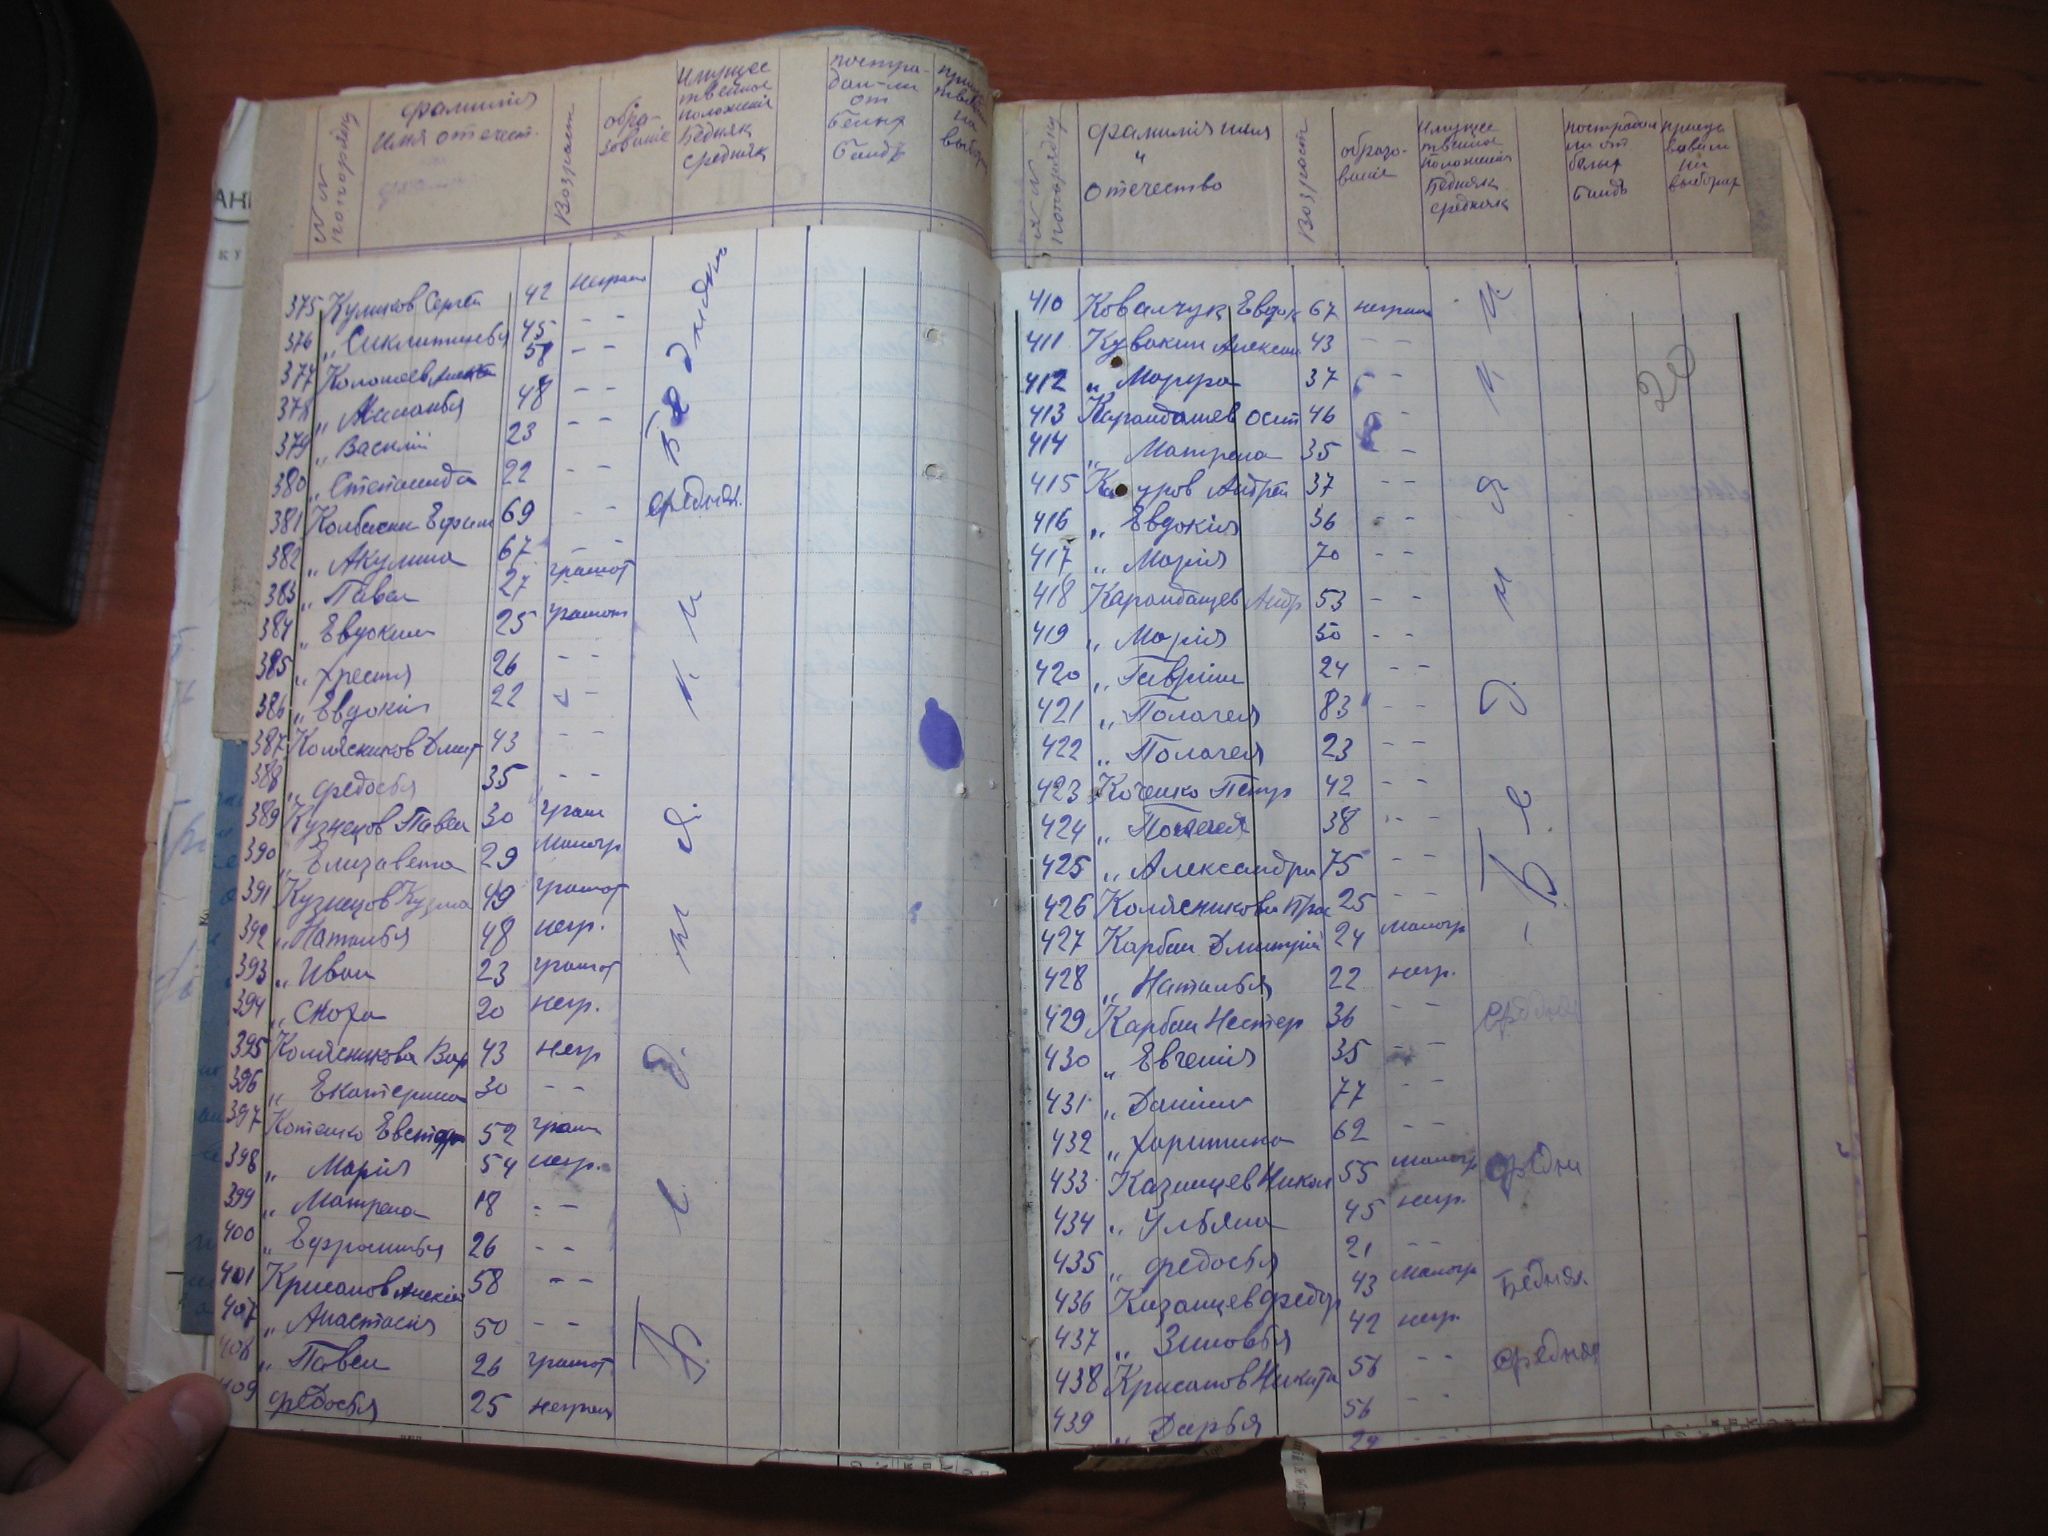 № № по порядку
фамилия
Имя отчест.
Возраст
обра-
зование
Имущес
твенное
положенiя
Бедняк
средняк
постра-
дал-ли
от
белых
банд
на
выбор
375 Куликов Сергей 42 неграм
376 „ 45 - -
377 58 - -
378 „ Меланья 48 - -
379 „ Василий 23 - -
380 „ Степанида 22 - -
381 Колбасин Ефим 69 - - средняя.
382 „ Акулина 67 - -
383 „ Павел 27 грамот
384 „ Евдоким 25 грамот
385 „ Хрестя 26 - -
386 „ Евдокия 22 - -
387 Колясников Дмит 43 - -
388 „ федосья 35 - -
389 Кузнецов Павел 30 грам
390 „ Елизавета 29 малогр
391 Кузнецов Кузма 49 грамот
392 „ Наталья 48 негр.
393 „ Иван 23 грамот
394 „ 20 негр.
395 Колясникова Вар 43 негр
396 „ Екатерина 30 - -
397 Котенко Евст 52 грам
398 „ Марiя 54 негр.
399 „ Матрена 18 - -
400 „ Ефросинья 26 - -
401 Крисанов Алексiй 58 - -
407 „ Анастасия 50 - -
408 „ Павел 26 грамот
409 федосья 25 неграм
Бедняки
Б е д н я к и
№ № по порядку
фамилiя имя
„
отчество
Возраст
образо-
ванiе
Имущес
твенное
положенiя
Бедняк
средняк
пострадал
ли от
белых
банд
присуц
вовали
на
выборах
20
410 Ковалчук Евдок 67 неграм
411 Кувакин Алексан 43 - -
412 „ Марфа 37 - -
413 Карандашев Осип 46 -
414 „ Матрена 35 - -
415 Андрей 37 - -
416 „ Евдокiя 36 - -
417 „ Марiя 70 - -
418 Карандашев Андр 53 - -
419 „ Марiя 50 - -
420 „ Гаврiил 24 - -
421 „ Полагея 83 - -
422 „ Полагея 23 - -
423 Котенко Петр 42 - -
424 „ 38 - -
425 „ Александра 75 - -
426 Колясникова Прас 25 - -
427 Карбан Дмитрiй 24 малогр
428 „ Наталья 22 негр.
429 Карбан Нестер 36 - - средняя
430 „ Евгенiя 35 - -
431 „ Данiил 77 - -
432 „ Харитина 62 - -
433 Казанцев Никол 55 малогр средня
434 „ Ульяна 45 негр.
435 „ федосья 21 - -
436 Казанцев федор 43 малогр Бедняк
437 „ Зиновья 42 негр.
438 Крисанов Никита 56 - - средняя
439 „ Дарья 56 - -
29 - -
Б е д н я к и